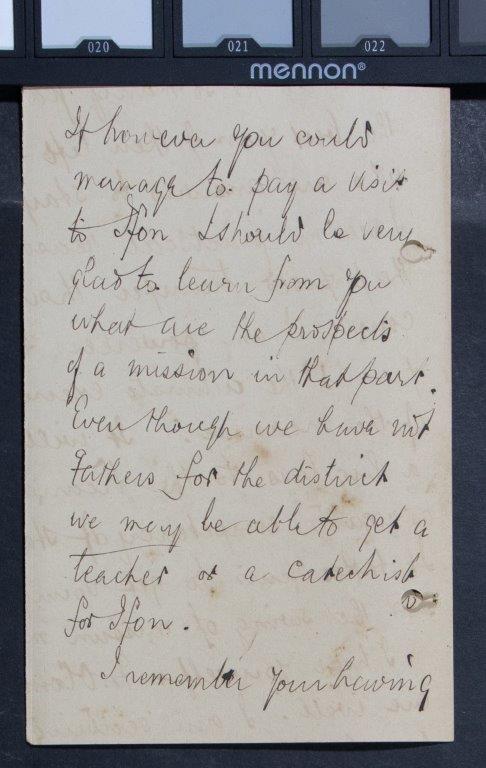 020 021 022
mennon®
If however you could
manage to pay a visit
to Ifon I should be very
glad to learn from you
what are the prospects
of a mission in that part.
Even though we have not
Fathers for the district
we may be able to get a
teacher or a catechist
for Ifon.
I remember your having